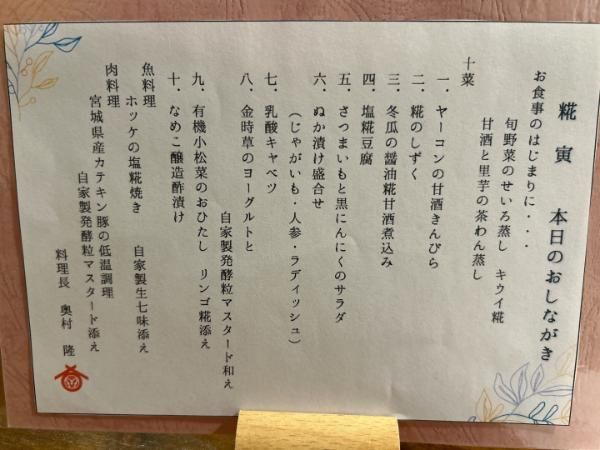 糀寅 本日のおしながき
お食事のはじまりに・・・
旬野菜のせいろ蒸し キウイ糀
甘酒と里芋の茶わん蒸し
十菜
一．ヤーコンの甘酒きんぴら
二．糀のしずく
三．冬瓜の醤油糀甘酒煮込み
四．塩糀豆腐
五．さつまいもと黒にんにくのサラダ
六．ぬか漬け盛合せ
（じゃがいも・人参・ラディッシュ）
七．乳酸キャベツ
八．金時草のヨーグルトと
自家製発酵粒マスタード和え
九．有機小松菜のおひたし リンゴ糀添え
十．なめこ醸造酢漬け
魚料理
ホッケの塩糀焼き 自家製生七味添え
肉料理
宮城県産カテキン豚の低温調理
自家製発酵粒マスタード添え
料理長 奥村 隆